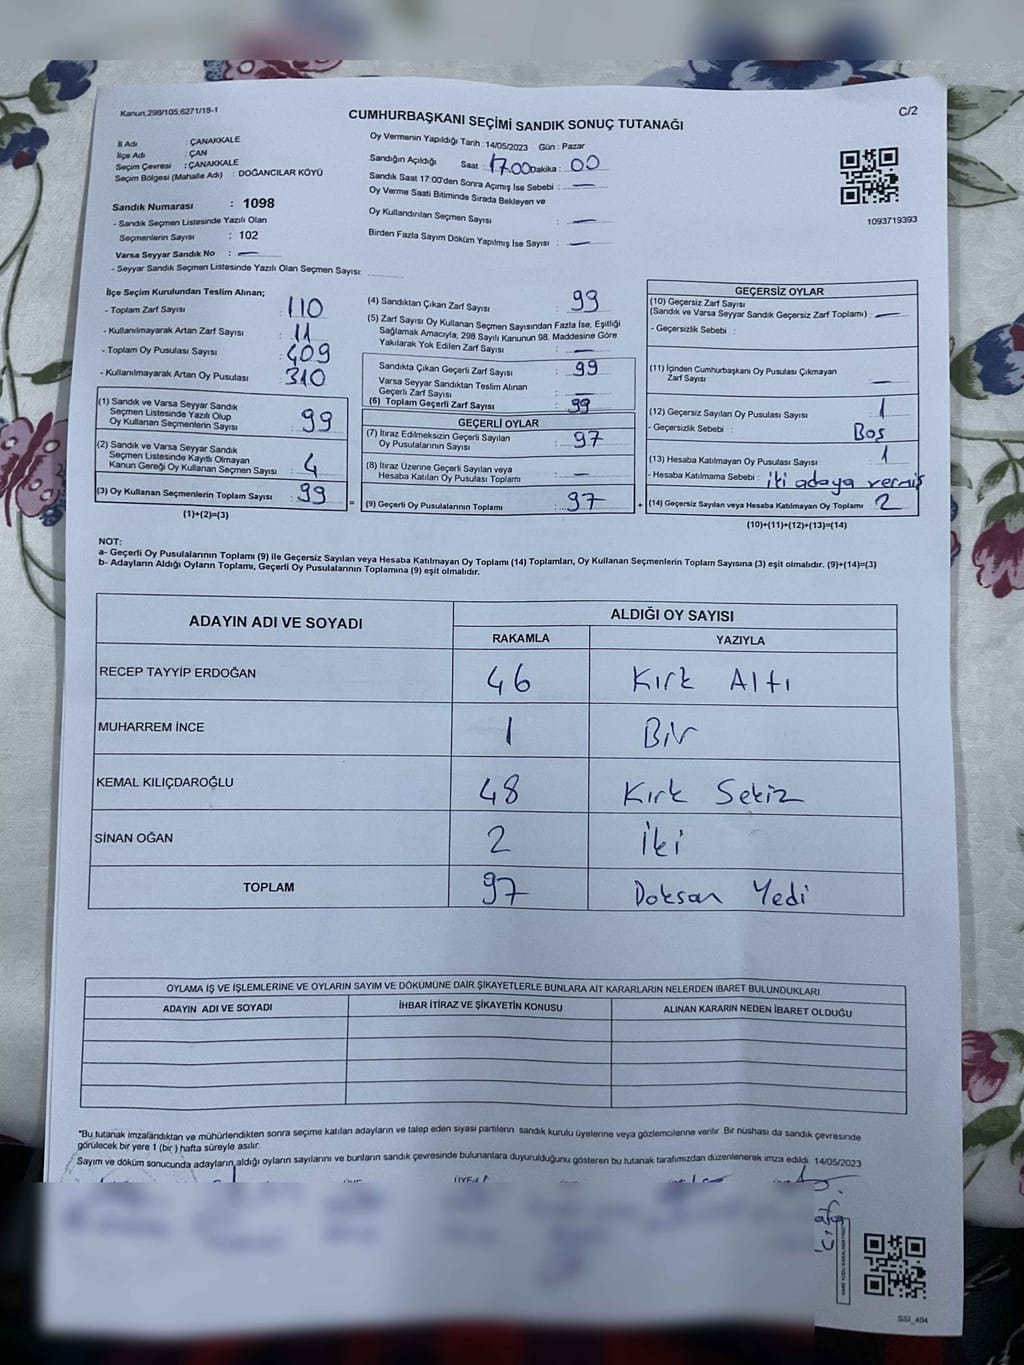 Kanun,298/105;6271/18-1
CUMHURBAŞKANI SEÇİMİ SANDIK SONUÇ TUTANAĞI
C/2
İl Adı : ÇANAKKALE
İlçe Adı : ÇAN
Seçim Çevresi : ÇANAKKALE
Seçim Bölgesi (Mahalle Adı) : DOĞANCILAR KÖYÜ
Sandık Numarası : 1098
- Sandık Seçmen Listesinde Yazılı Olan
Seçmenlerin Sayısı : 102
Varsa Seyyar Sandık No : —
- Seyyar Sandık Seçmen Listesinde Yazılı Olan Seçmen Sayısı:
Oy Vermenin Yapıldığı Tarih : 14/05/2023 Gün : Pazar
Sandığın Açıldığı Saat : 17.00 Dakika : 00
Sandık Saat 17:00'den Sonra Açımış İse Sebebi : —
Oy Verme Saati Bitiminde Sırada Bekleyen ve
Oy Kullandırılan Seçmen Sayısı : —
Birden Fazla Sayım Döküm Yapılmış İse Sayısı : —
1093719393
İlçe Seçim Kurulundan Teslim Alınan;
- Toplam Zarf Sayısı : 110
- Kullanılmayarak Artan Zarf Sayısı : 11
- Toplam Oy Pusulası Sayısı : 409
- Kullanılmayarak Artan Oy Pusulası : 310
(1) Sandık ve Varsa Seyyar Sandık
Seçmen Listesinde Yazılı Olup
Oy Kullanan Seçmenlerin Sayısı : 99
(2) Sandık ve Varsa Seyyar Sandık
Seçmen Listesinde Kayıtlı Olmayan
Kanun Gereği Oy Kullanan Seçmen Sayısı : 4
(3) Oy Kullanan Seçmenlerin Toplam Sayısı : 99
(1)+(2)=(3)
(4) Sandıktan Çıkan Zarf Sayısı : 99
(5) Zarf Sayısı Oy Kullanan Seçmen Sayısından Fazla İse, Eşitliği
Sağlamak Amacıyla; 298 Sayılı Kanunun 98. Maddesine Göre
Yakılarak Yok Edilen Zarf Sayısı : —
Sandıkta Çıkan Geçerli Zarf Sayısı : 99
Varsa Seyyar Sandıktan Teslim Alınan
Geçerli Zarf Sayısı : —
(6) Toplam Geçerli Zarf Sayısı : 99
GEÇERLİ OYLAR
(7) İtiraz Edilmeksizin Geçerli Sayılan
Oy Pusulalarının Sayısı : 97
(8) İtiraz Üzerine Geçerli Sayılan veya
Hesaba Katılan Oy Pusulası Toplamı : —
= (9) Geçerli Oy Pusulalarının Toplamı : 97
GEÇERSİZ OYLAR
(10) Geçersiz Zarf Sayısı
(Sandık ve Varsa Seyyar Sandık Geçersiz Zarf Toplamı) : —
- Geçersizlik Sebebi :
(11) İçinden Cumhurbaşkanı Oy Pusulası Çıkmayan
Zarf Sayısı : —
(12) Geçersiz Sayılan Oy Pusulası Sayısı : 1
- Geçersizlik Sebebi : Boş
(13) Hesaba Katılmayan Oy Pusulası Sayısı : 1
- Hesaba Katılmama Sebebi : iki adaya vermiş
+ (14) Geçersiz Sayılan veya Hesaba Katılmayan Oy Toplamı : 2
(10)+(11)+(12)+(13)=(14)
NOT:
a- Geçerli Oy Pusulalarının Toplamı (9) ile Geçersiz Sayılan veya Hesaba Katılmayan Oy Toplamı (14) Toplamları, Oy Kullanan Seçmenlerin Toplam Sayısına (3) eşit olmalıdır. (9)+(14)=(3)
b- Adayların Aldığı Oyların Toplamı, Geçerli Oy Pusulalarının Toplamına (9) eşit olmalıdır.
ADAYIN ADI VE SOYADI
ALDIĞI OY SAYISI
RAKAMLA YAZIYLA
RECEP TAYYİP ERDOĞAN 46 Kırk Altı
MUHARREM İNCE 1 Bir
KEMAL KILIÇDAROĞLU 48 Kırk Sekiz
SİNAN OĞAN 2 İki
TOPLAM 97 Doksan Yedi
OYLAMA İŞ VE İŞLEMLERİNE VE OYLARIN SAYIM VE DÖKÜMÜNE DAİR ŞİKAYETLERLE BUNLARA AİT KARARLARIN NELERDEN İBARET BULUNDUKLARI
ADAYIN ADI VE SOYADI İHBAR İTİRAZ VE ŞİKAYETİN KONUSU ALINAN KARARIN NEDEN İBARET OLDUĞU
*Bu tutanak imzalandıktan ve mühürlendikten sonra seçime katılan adayların ve talep eden siyasi partilerin sandık kurulu üyelerine veya gözlemcilerine verilir. Bir nüshası da sandık çevresinde
görülecek bir yere 1 (bir) hafta süreyle asılır.
Sayım ve döküm sonucunda adayların aldığı oyların sayılarını ve bunların sandık çevresinde bulunanlara duyurulduğunu gösteren bu tutanak tarafımızdan düzenlenerek imza edildi. 14/05/2023
SSI_404